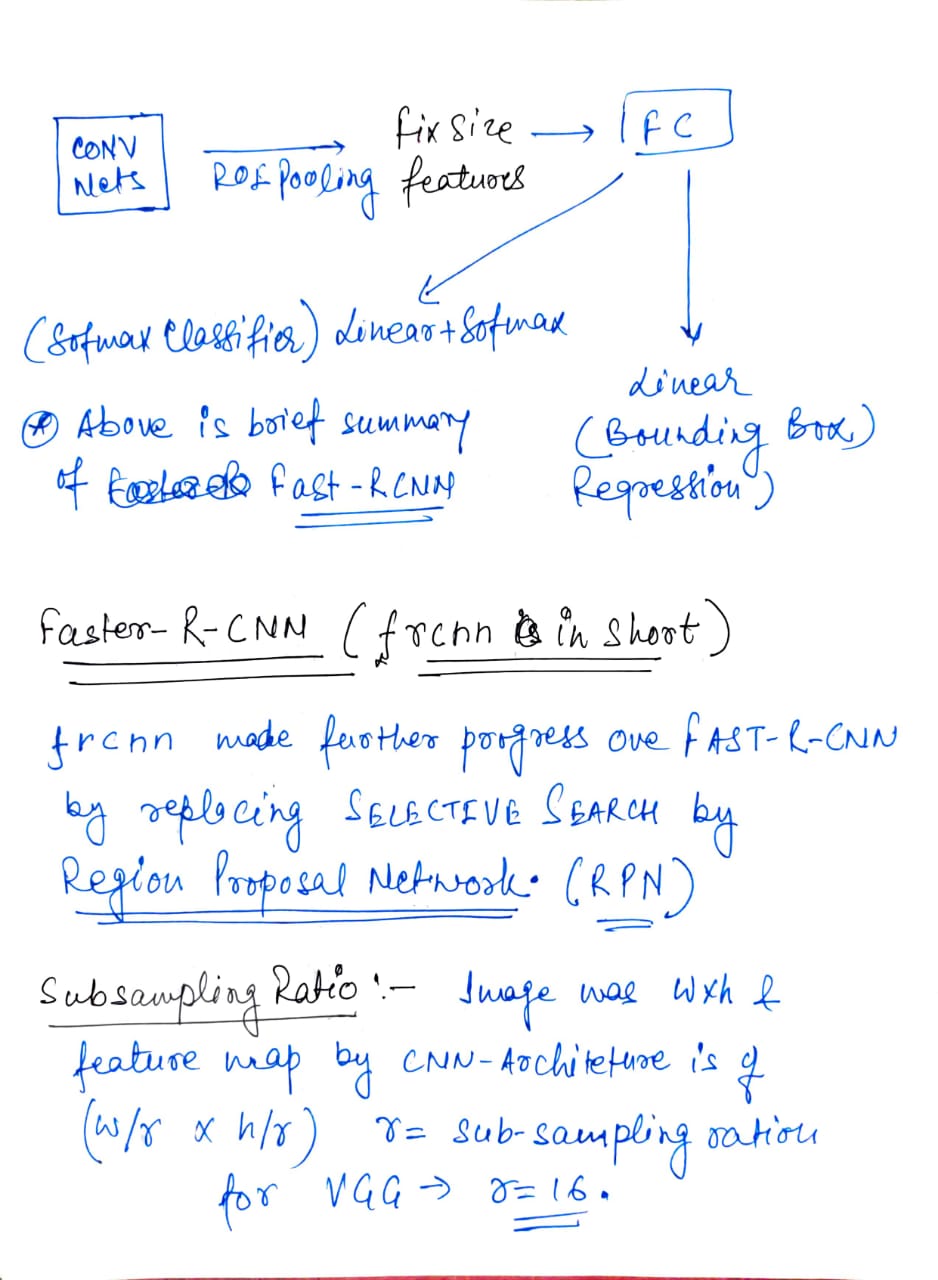 CONV
Nets
ROI Pooling
fix size
features
FC
(Sofmax Classifier) Linear + Sofmax
Linear
(Bounding Box)
Regression)
Above is brief summary
of Fast-RCNN
Faster-R-CNN (frcnn in short)
frcnn made further progress ove FAST-R-CNN
by replacing SELECTIVE SEARCH by
Region Proposal Network. (RPN)
Subsampling Ratio :- Image was wxh &
feature map by CNN-Architeture is of
(w/r x h/r) r= sub-sampling ration
for VGG → r=16.